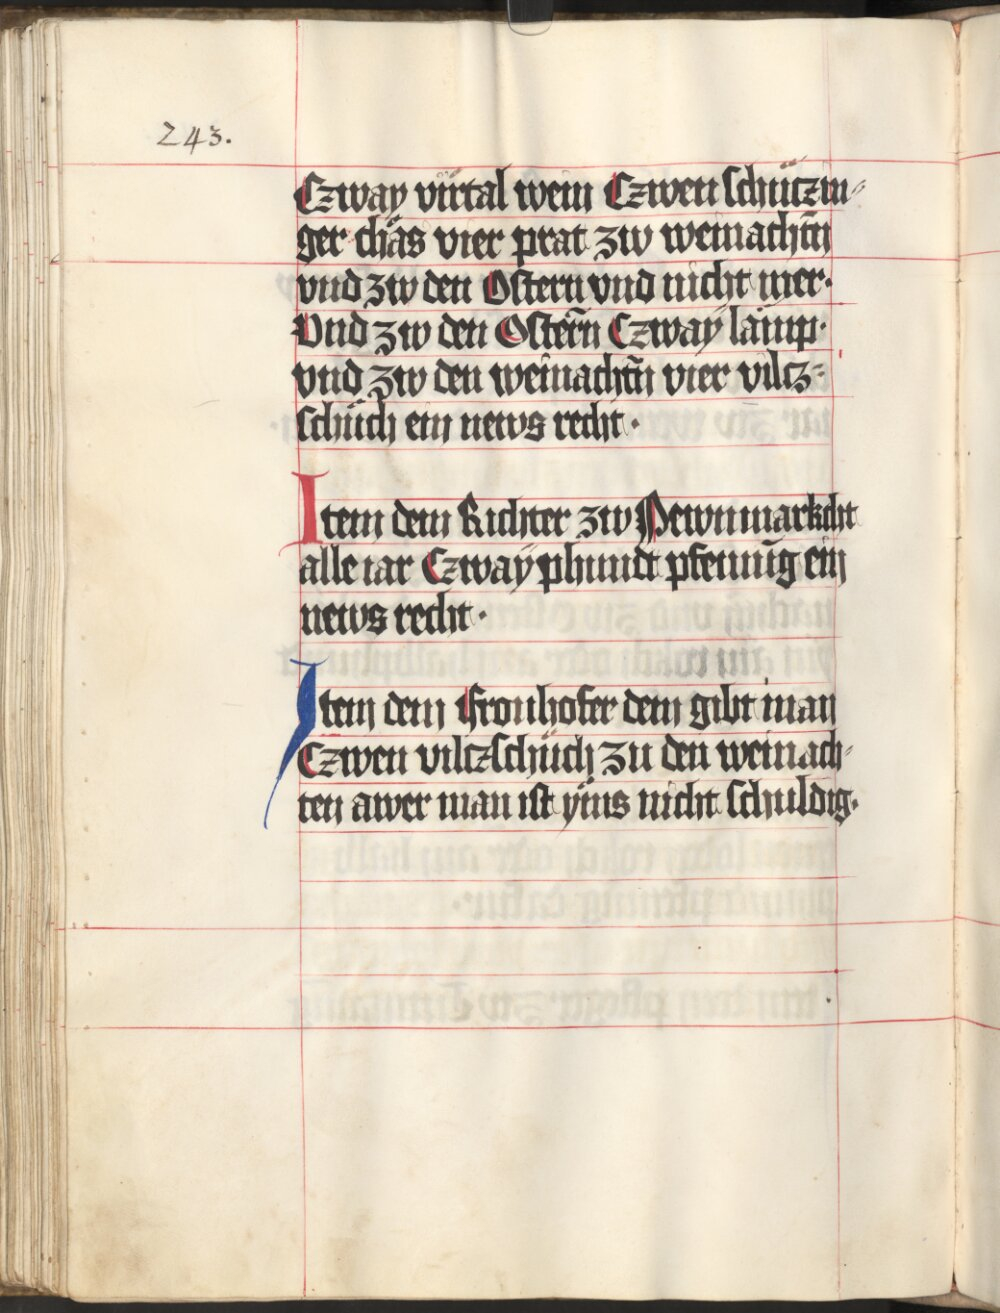 243.
Czway virtal wein Czwen schüczin-
ger chäs vier prat zw weinachtn̄
vnd zw den Ostern vnd nicht mer.
Vnd zw den Ostern̄ Czway lamp.
vnd zw den weinachtn̄ vier vilcz-
schüch ein news recht.
Item dem Richter zw Newnmarkcht
alle iar Czwaÿ phunt pfennīg ein
news recht.
Item dem Fronhofer dem gibt man
Czwen vilczschüch zu den weinach-
ten awer man ist ÿms nicht schuldig.